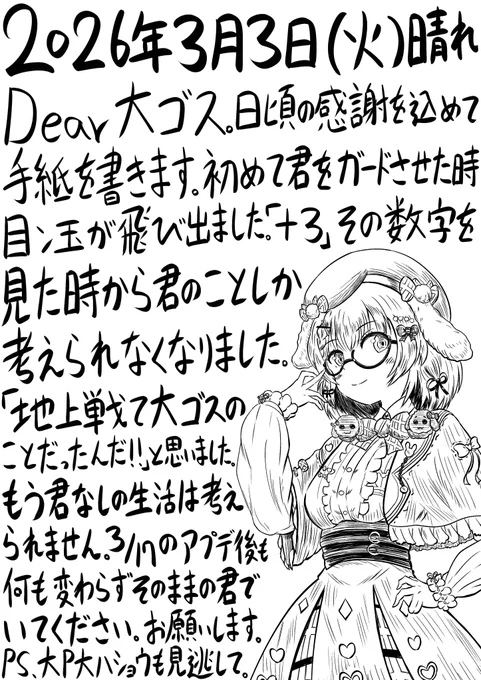 2026年3月3日(火)晴れ
Dear大ゴス。日頃の感謝を込めて
手紙を書きます。初めて君をガードさせた時
目ン玉が飛び出ました。「+3」その数字を
見た時から君のことしか
考えられなくなりました。
「地上戦て大ゴスの
ことだったんだ!!」と思いました。
もう君なしの生活は考え
られません。3/17のアプデ後も
何も変わらずそのままの君で
いてください。お願いします。
PS、大P大バショウも見逃して。